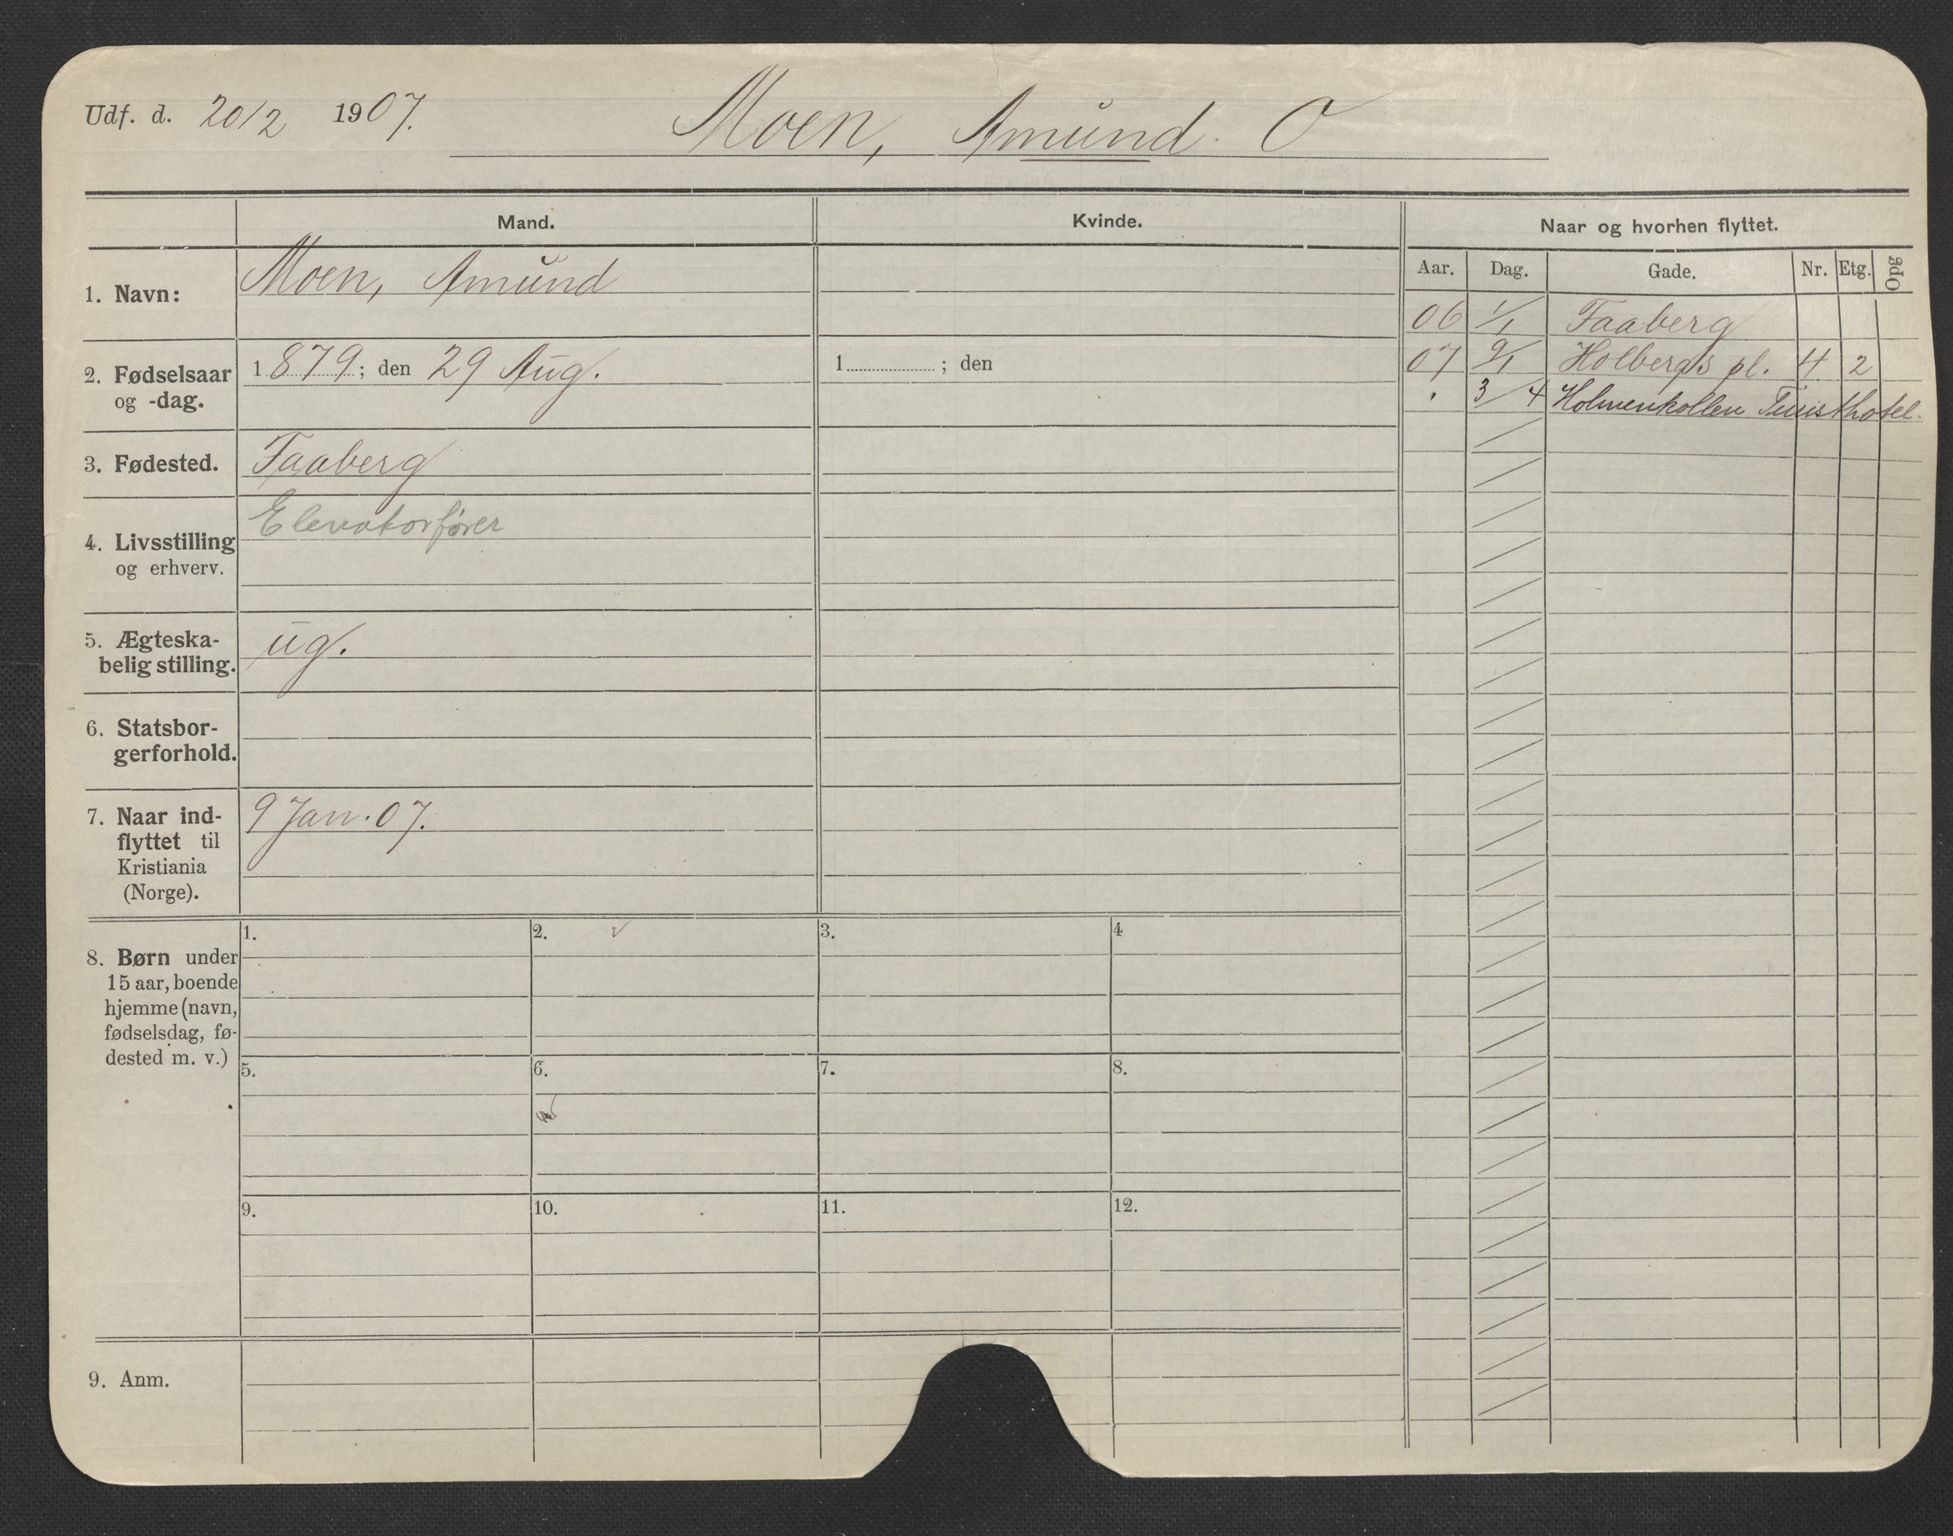 Udf. d. 20/2 1907. Moen, Amund O
Mand. Kvinde. Naar og hvorhen flyttet.
Aar. Dag. Gade. Nr. Etg. Opg
1. Navn: Moen, Amund
06 1/1 Faaberg
2. Fødselsaar 1879; den 29 Aug. 1 ; den
og -dag.
07 9/1 Holbergs pl. 4 2
" 3/4 Holmenkollen Turisthotel.
3. Fødested. Faaberg
4. Livsstilling Elevatorfører
og erhverv.
5. Ægteska- ug.
belig stilling.
6. Statsbor-
gerforhold.
7. Naar ind- 9 Jan. 07.
flyttet til
Kristiania
(Norge).
8. Børn under
15 aar, boende
hjemme (navn,
fødselsdag, fø-
dested m. v.)
1. 2. 3. 4
5. 6. 7. 8.
9. 10. 11. 12.
9. Anm.